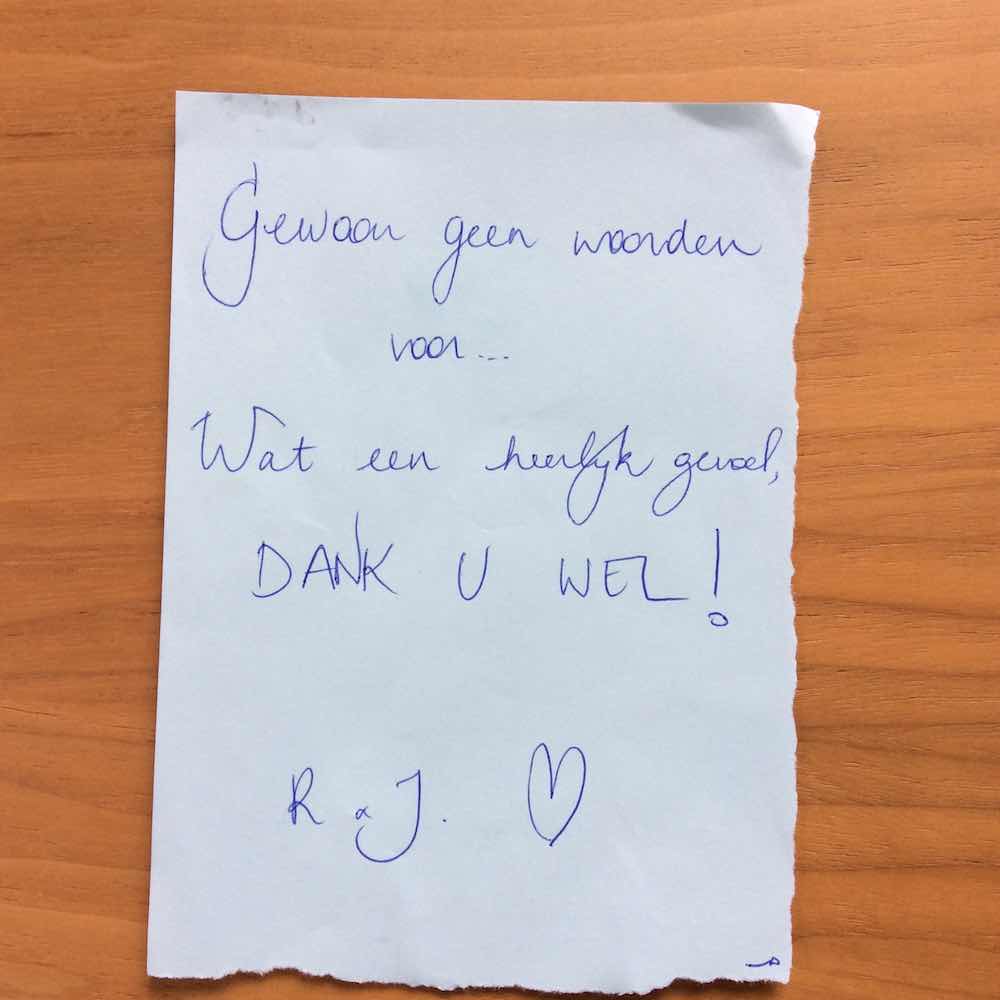 Gewoon geen woorden
voor...
Wat een heerlijk gevoel,
DANK U WEL!
R & J. ♡